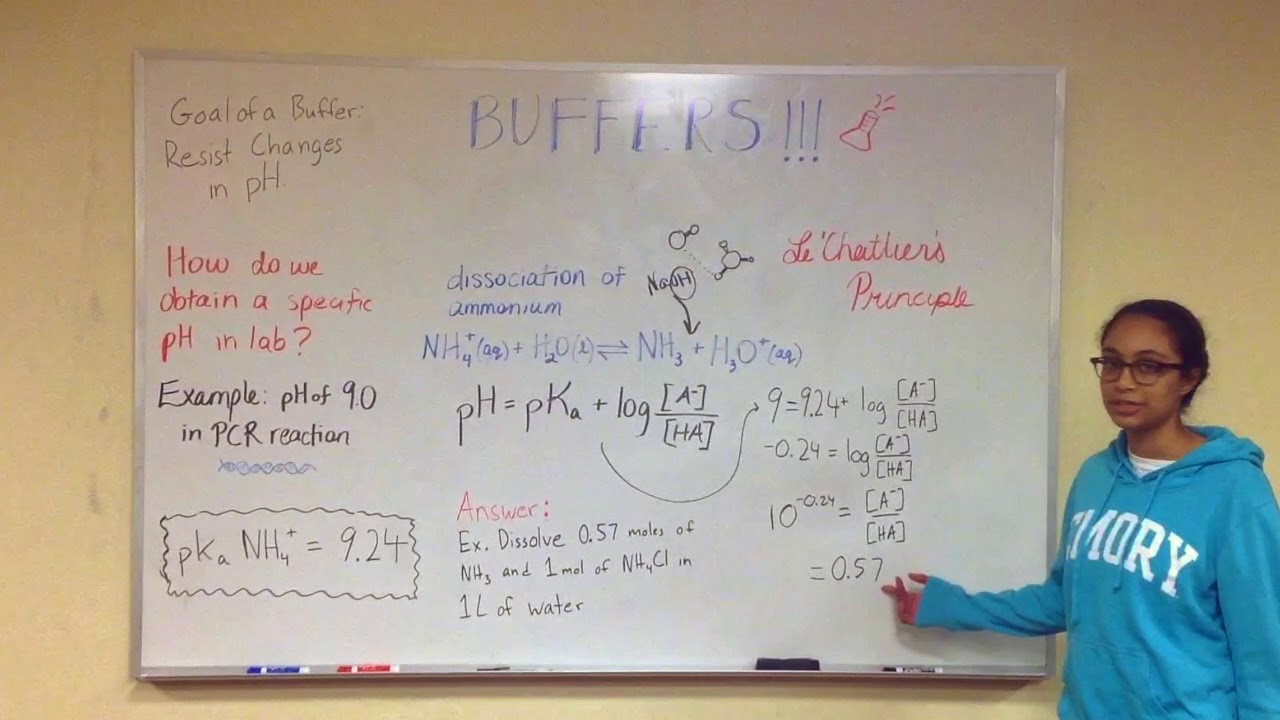 Goal of a Buffer:
Resist Changes
in pH.
BUFFERS!!!
How do we
obtain a specific
pH in lab?
Example: pH of 9.0
in PCR reaction
pKa NH4+ = 9.24
dissociation of
ammonium
NaOH
NH4+(aq) + H2O(l) ⇌ NH3 + H3O+(aq)
pH = pKa + log [A-]/[HA]
Answer:
Ex. Dissolve 0.57 moles of
NH3 and 1 mol of NH4Cl in
1L of water
Le'Chatlier's
Principle
9 = 9.24 + log [A-]/[HA]
-0.24 = log [A-]/[HA]
10^-0.24 = [A-]/[HA]
= 0.57
EMORY